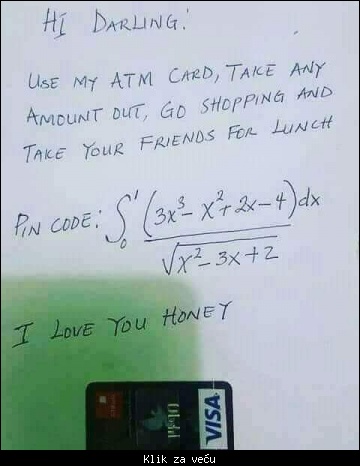 HI DARLING!
USE MY ATM CARD, TAKE ANY
AMOUNT OUT, GO SHOPPING AND
TAKE YOUR FRIENDS FOR LUNCH
PIN CODE: ∫₀¹ (3x³ - x² + 2x - 4)dx / √(x² - 3x + 2)
I LOVE YOU HONEY
VISA
Klik za veću